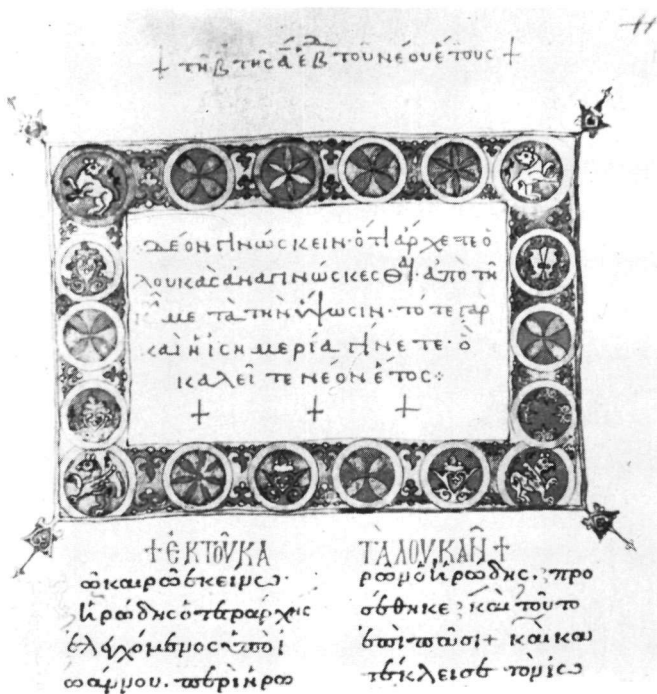 11
+ τῇ β τῆς ᾱ ἑβ τοῦ νέου ἔτους +
Δέον γινώσκειν· ὅτι ἄρχετε ὁ
λουκᾶς ἀναγινώσκεσθαι· ἀπὸ τῆ
κ̅ μετὰ τὴν ὕψωσιν· τότε γὰρ
καὶ ἡ ἰσημερία γίνετε· ὃ
καλεῖτε νέον ἔτος·
+ + +
+ ἐκ τοῦ κατὰ λουκᾶν +
ῶ καιρῶ ἐκείνω·
ἡρώδης ὁ τετράρχης
ἐλεγχόμενος ὑπὸ ἰ
ωάννου. περὶ ἡρω
ὁ ἡρώδης. προ
σέθηκε καὶ τοῦτο
ἐπὶ πᾶσι + καὶ κα
τέκλεισε τὸν ἰω